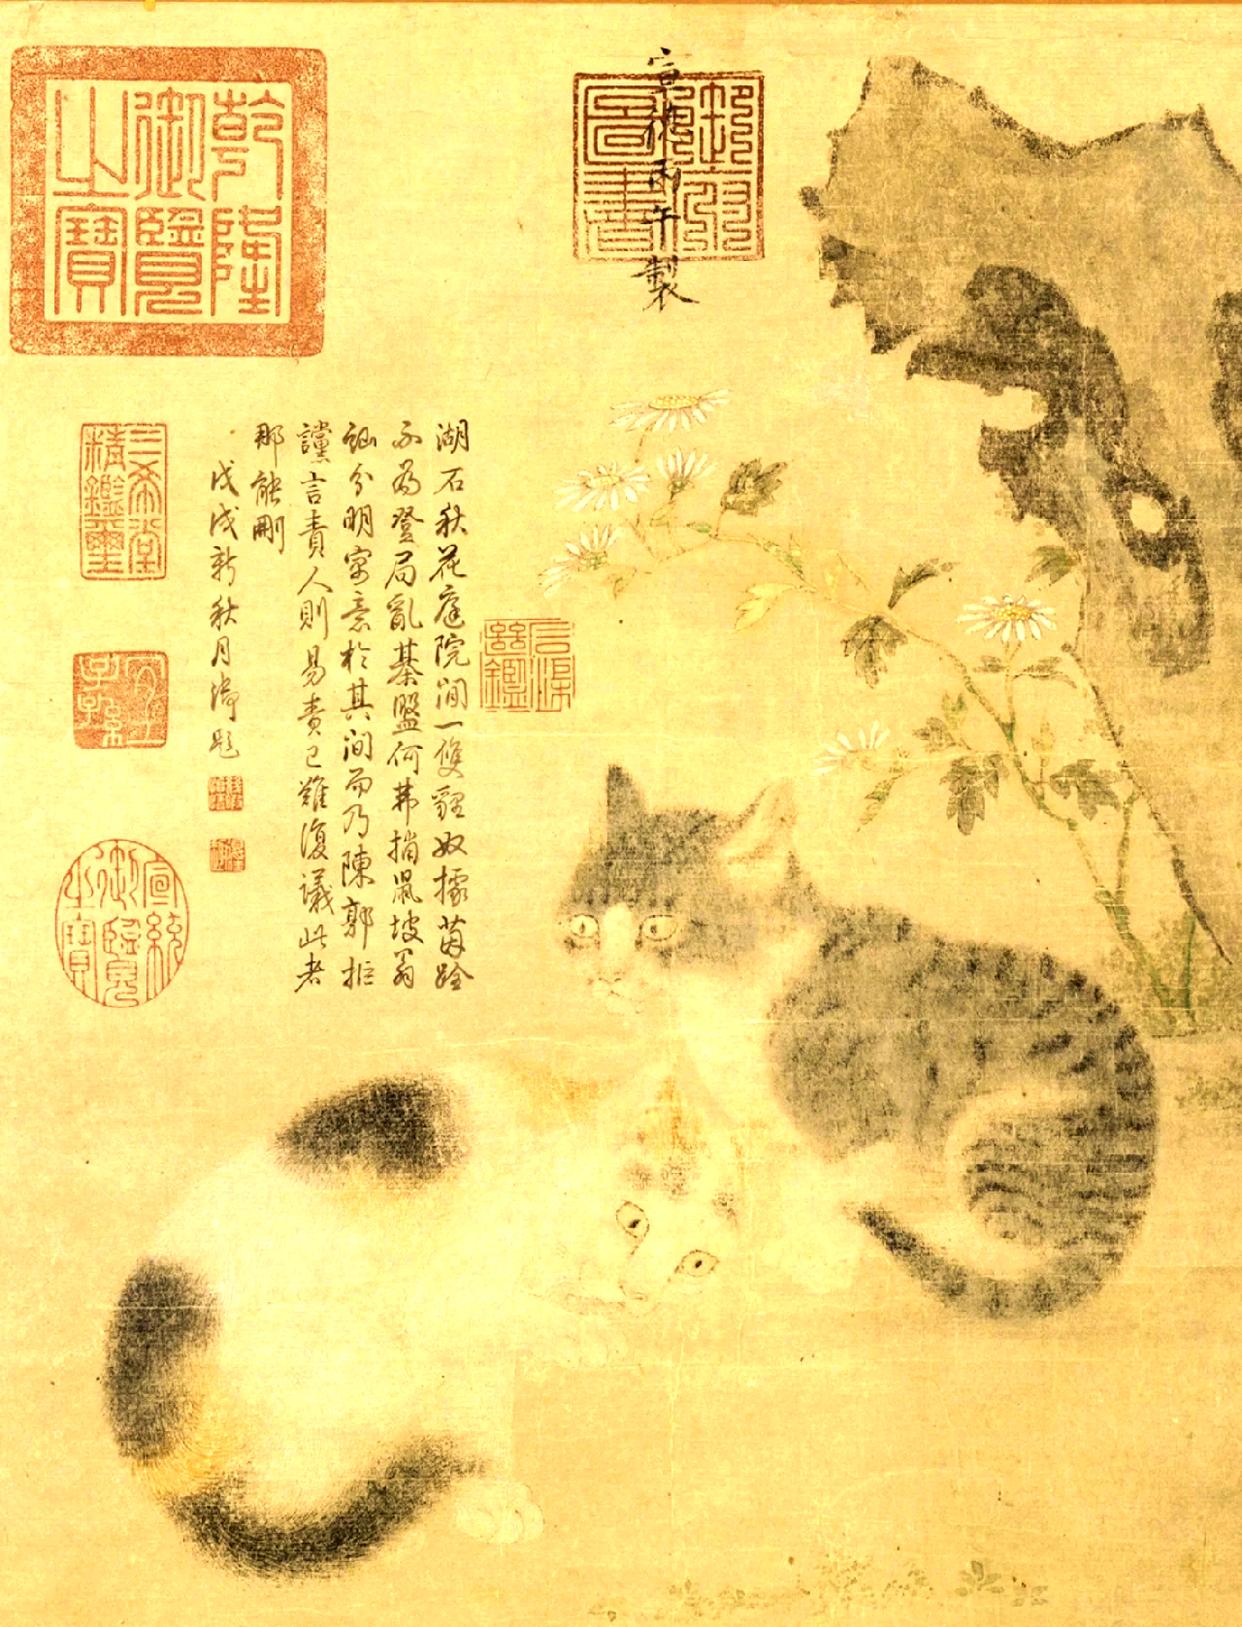 宣德丙午製
湖石秋花庭院間一雙貍奴據茵跧
不為登局亂棊盤何弗捎鼠坡翁
訕分明寓意於其間而乃陳郭拒
讜言責人則易責己難復議此者
那能刪
戊戌新秋月御題
石渠繼鑑
乾隆御覽之寶
三希堂精鑑璽
宜子孫
宣統御覽之寶